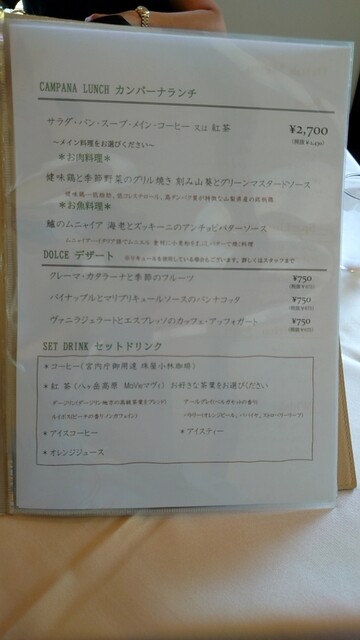 CAMPANA LUNCH カンパーナランチ
サラダ・パン・スープ・メイン・コーヒー 又は 紅茶 ¥2,700
～メイン料理をお選びください～
＊お肉料理＊
健味鶏と季節野菜のグリル焼き 刻み山葵とグリーンマスタードソース
＊お魚料理＊
のムニャイア 海老とズッキーニのアンチョビバターソース
DOLCE デザート
クレーマ・カタラーナと季節のフルーツ ¥750
パイナップルとマリブリキュールソースのパンナコッタ ¥750
ヴァニラジェラートとエスプレッソのカッフェ・アッフォガート ¥750
SET DRINK セットドリンク
＊コーヒー(宮内庁御用達 珠屋小林珈琲)
＊紅茶(八ヶ岳高原 MaVieマヴィ) お好きな茶葉をお選びください
＊アイスコーヒー ＊アイスティー
＊オレンジジュース